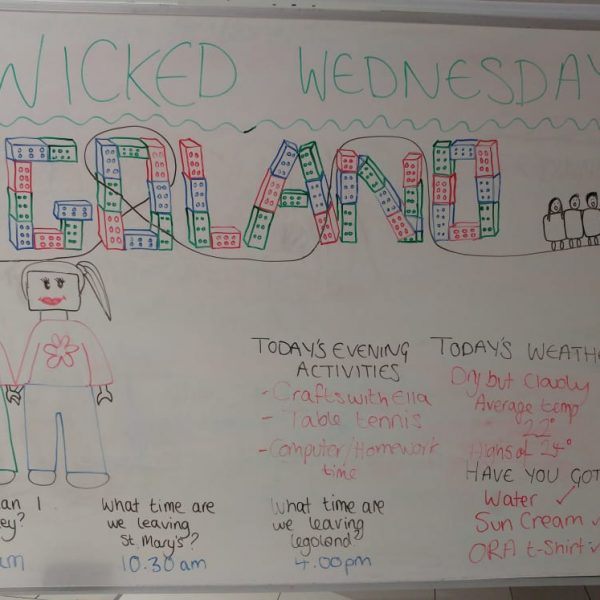 WICKED WEDNESDAY
GOLAND
TODAY'S EVENING
ACTIVITIES
- Crafts with Ella
- Table tennis
- Computer/Homework
time
TODAY'S WEATHE
Dry but Cloudy
Average temp
22°
Highs of 24°
HAVE YOU GOT
Water ✓
Sun Cream ✓
ORA t-Shirt ✓
an I
ey?
am
What time are
we leaving
St Mary's?
10.30 am
What time are
we leaving
legoland?
4.00pm